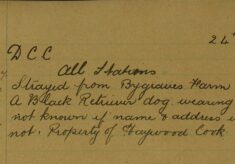 24
DCC
All Stations
Strayed from Bygraves Farm
A Black Retriever dog wearing
not known if name & address
not. Property of Haywood Cook